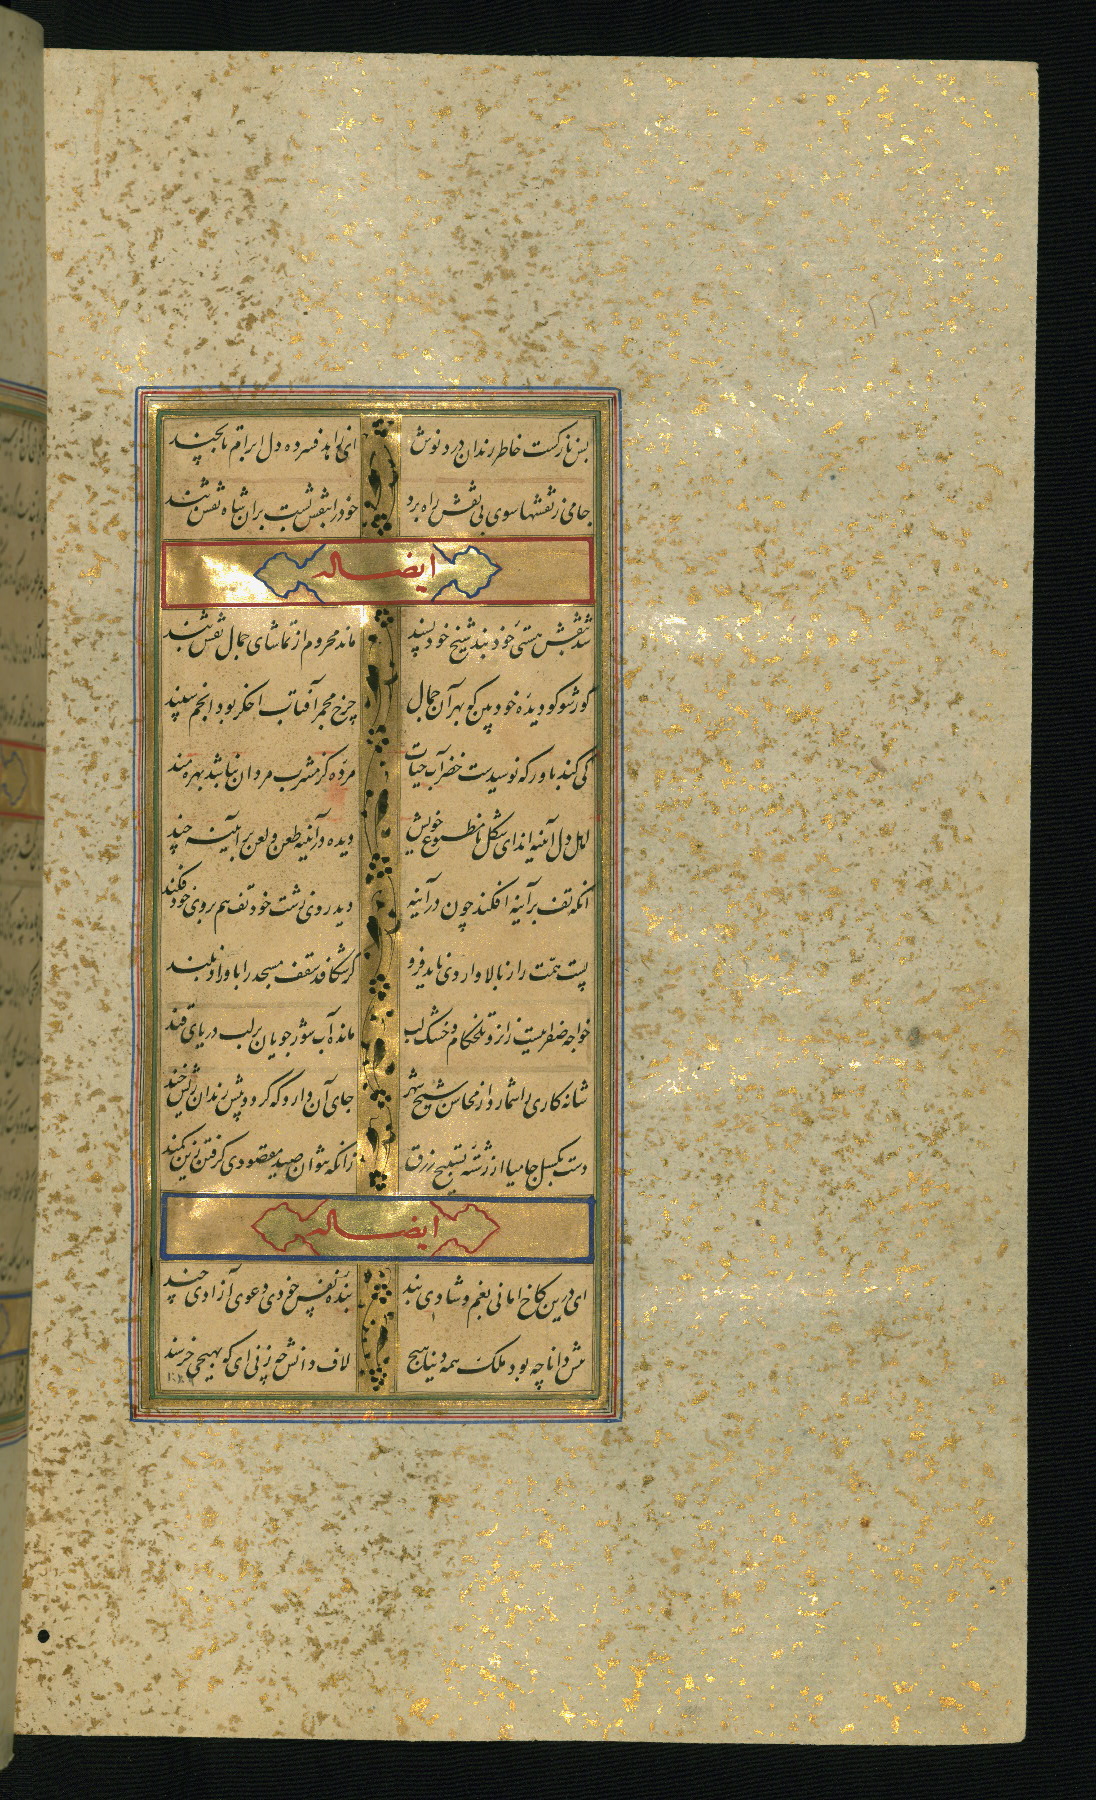 بس نازکست خاطر رندان درد نوش ای زاهد فسرده دل ابرام تا بچند
جامی ز نقشها سوی بی نقش راه برد خود را بنقش نیست بران شاه نقش بند
ایضاله
شد بنقش هستی خود بند شیخ خود پسند ماند محروم از تماشای جمال نقش بند
گو رشو کو دیده خود بین که بهر آن جمال چرخ مجمر آفتاب اخکر بود انجم سپند
کی کند باور که نوسیدست خضر آب حیات مرده کز مشرب مردان نباشد بهره مند
اهل دل آینه اند ای شکل نامطبوع خویش دیده در آینه طعن و لعن بر آینه چند
انکه تف بر آینه افکند چون در آینه دید روی زشت خود تف هم بروی خود فکند
پست همت را ز بالا وا روی ناید فرو گر شکافد سقف مسجد را باوراد بلند
خواجه صفراییست زانرو تلخکام و خشک لب ماند آب شور جویان بر لب دریای قند
شانه کاری را شمارد از محاسن شیخ شهر جای آن دارد که گردد پیش رندان ریش خند
دست بکسل جامیا از رشته تسبیح زرق زانکه نتوان صید مقصودی گرفتن زین کمند
ایضاله
ای درین کاخ امانی بغم و شادی بند بنده نفس خودی دعوی آزادی چند
پیش دانا چه بود ملک همه دنیا هیچ لاف دانش چه زنی ای که بهیچی خرسند